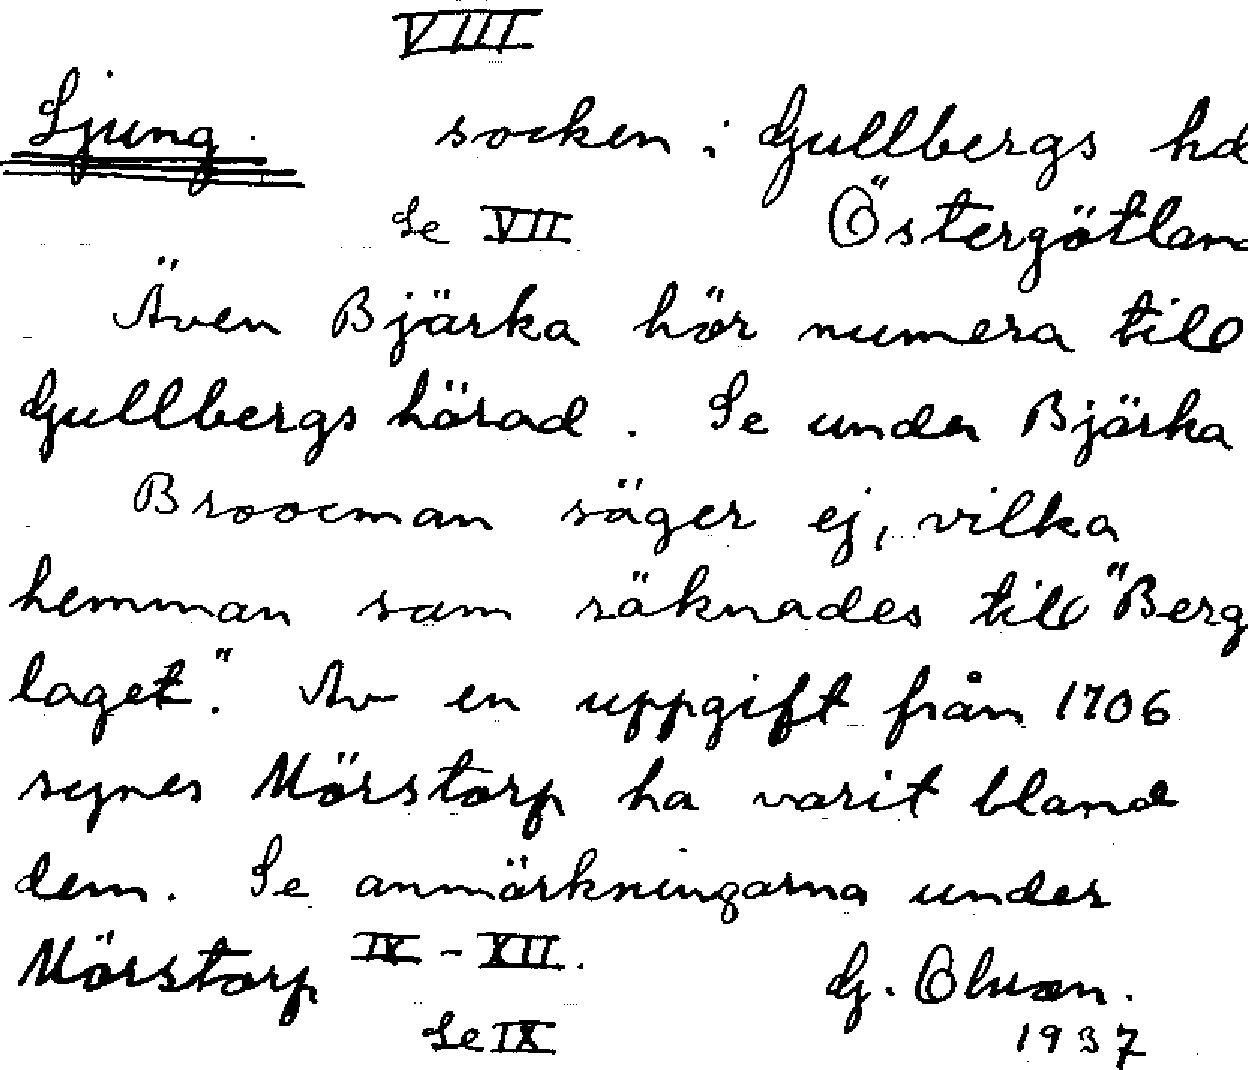 VIII
Ljung. socken i Gullbergs hd
Se VII Östergötland
Även Bjärka hör numera till
Gullbergs härad. Se under Bjärka
Broocman säger ej, vilka
hemman som räknades till "Berg
laget". Av en uppgift från 1706
synes Mörstorp ha varit bland
dem. Se anmärkningarna under
Mörstorp IX - XII. G. Olsson.
Se IX 1937